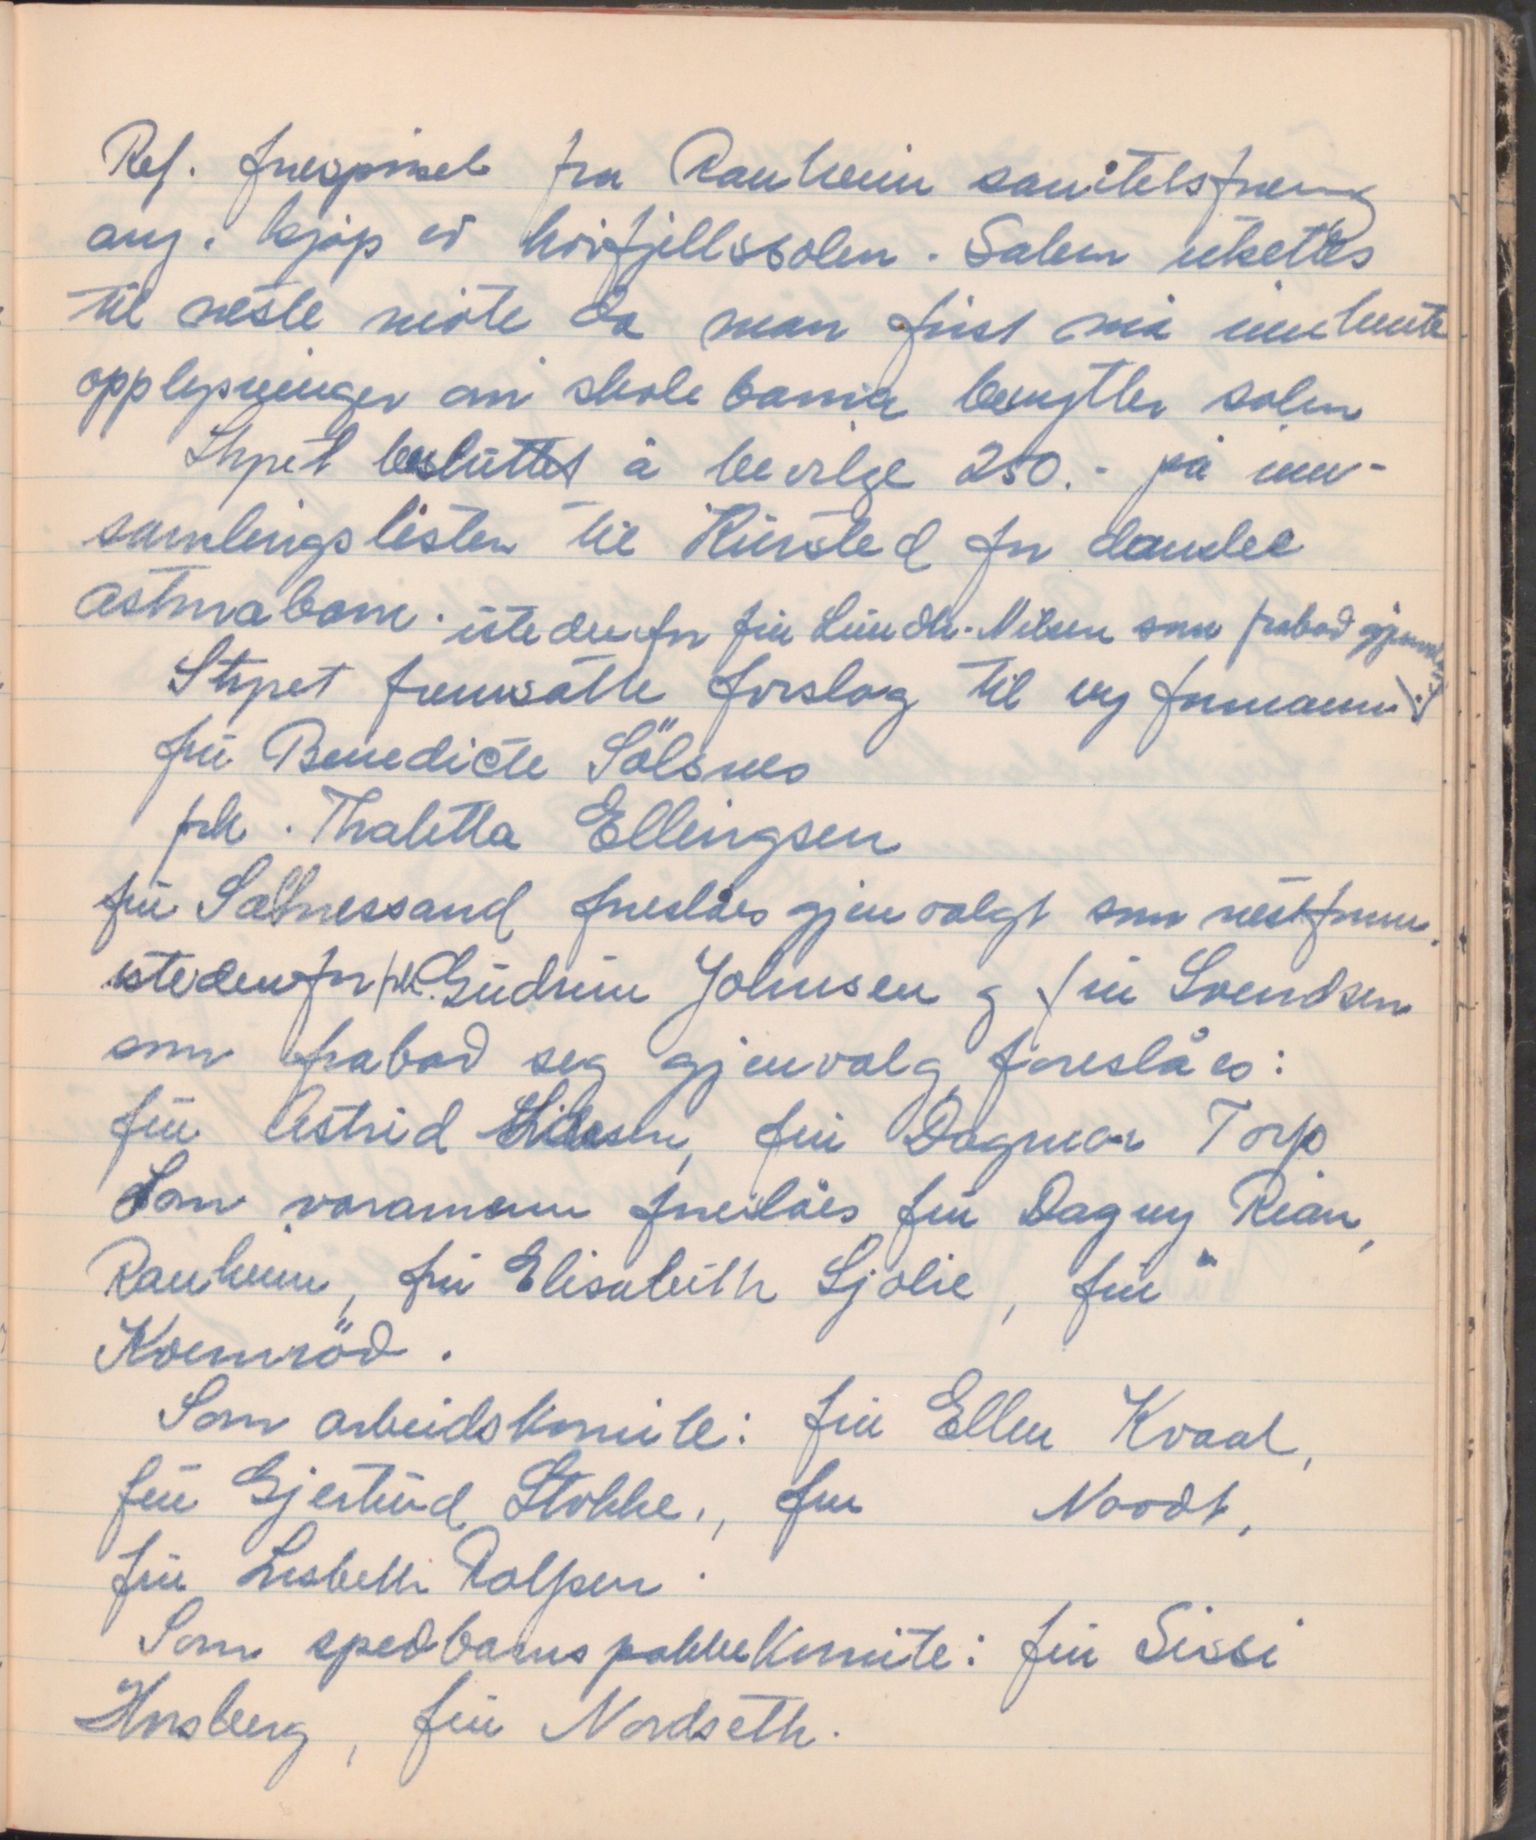 Ref. forespørsel fra Ranheim sanitetsforening
ang. kjøp av høifjellssolen. Saken utsettes
til neste møte da man først må innhente
opplysninger om skolebarna benytter solen
Styret besluttet å bevilge 250.- på inn-
samlingslisten til Kursted for danske
astmabarn.
istedenfor fru Lindh-Nilsen som frabad gjenvalg
Styret fremsatte forslag til ny formann:
fru Benedicte Sölsnes
frk. Thaletta Ellingsen
fru Sætnessand foreslåes gjenvalgt som nestform.
istedenfor frk. Gudrun Johnsen og fru Svendsen
som frabad seg gjenvalg foreslåes:
fru Astrid fru Dagmar Torp
Som varamenn foreslåes fru Dagny Rian,
Ranheim, fru Elisabeth Sjølie, fru "
Kvernröd.
Som arbeidskomite: fru Ellen Kvaal,
fru Gjertrud Stokke., fru Noodt,
fru Lisbeth Rolfsen.
Som spedbarnspakkekomite: fru Sissi
Horsberg, fru Nordseth.